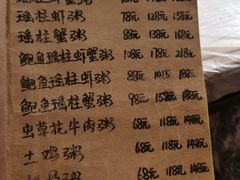 瑶柱虾粥 78元 128元 158元
瑶柱蟹粥 88元 138元 168元
鲍鱼瑶柱虾蟹粥 108元 178元 218元
鲍鱼瑶柱虾粥 88元
鲍鱼瑶柱蟹粥 98元 158元
虫草花牛肉粥 68元 118元 148元
土鸡粥 68元 118元 148元
68元 118元 148元